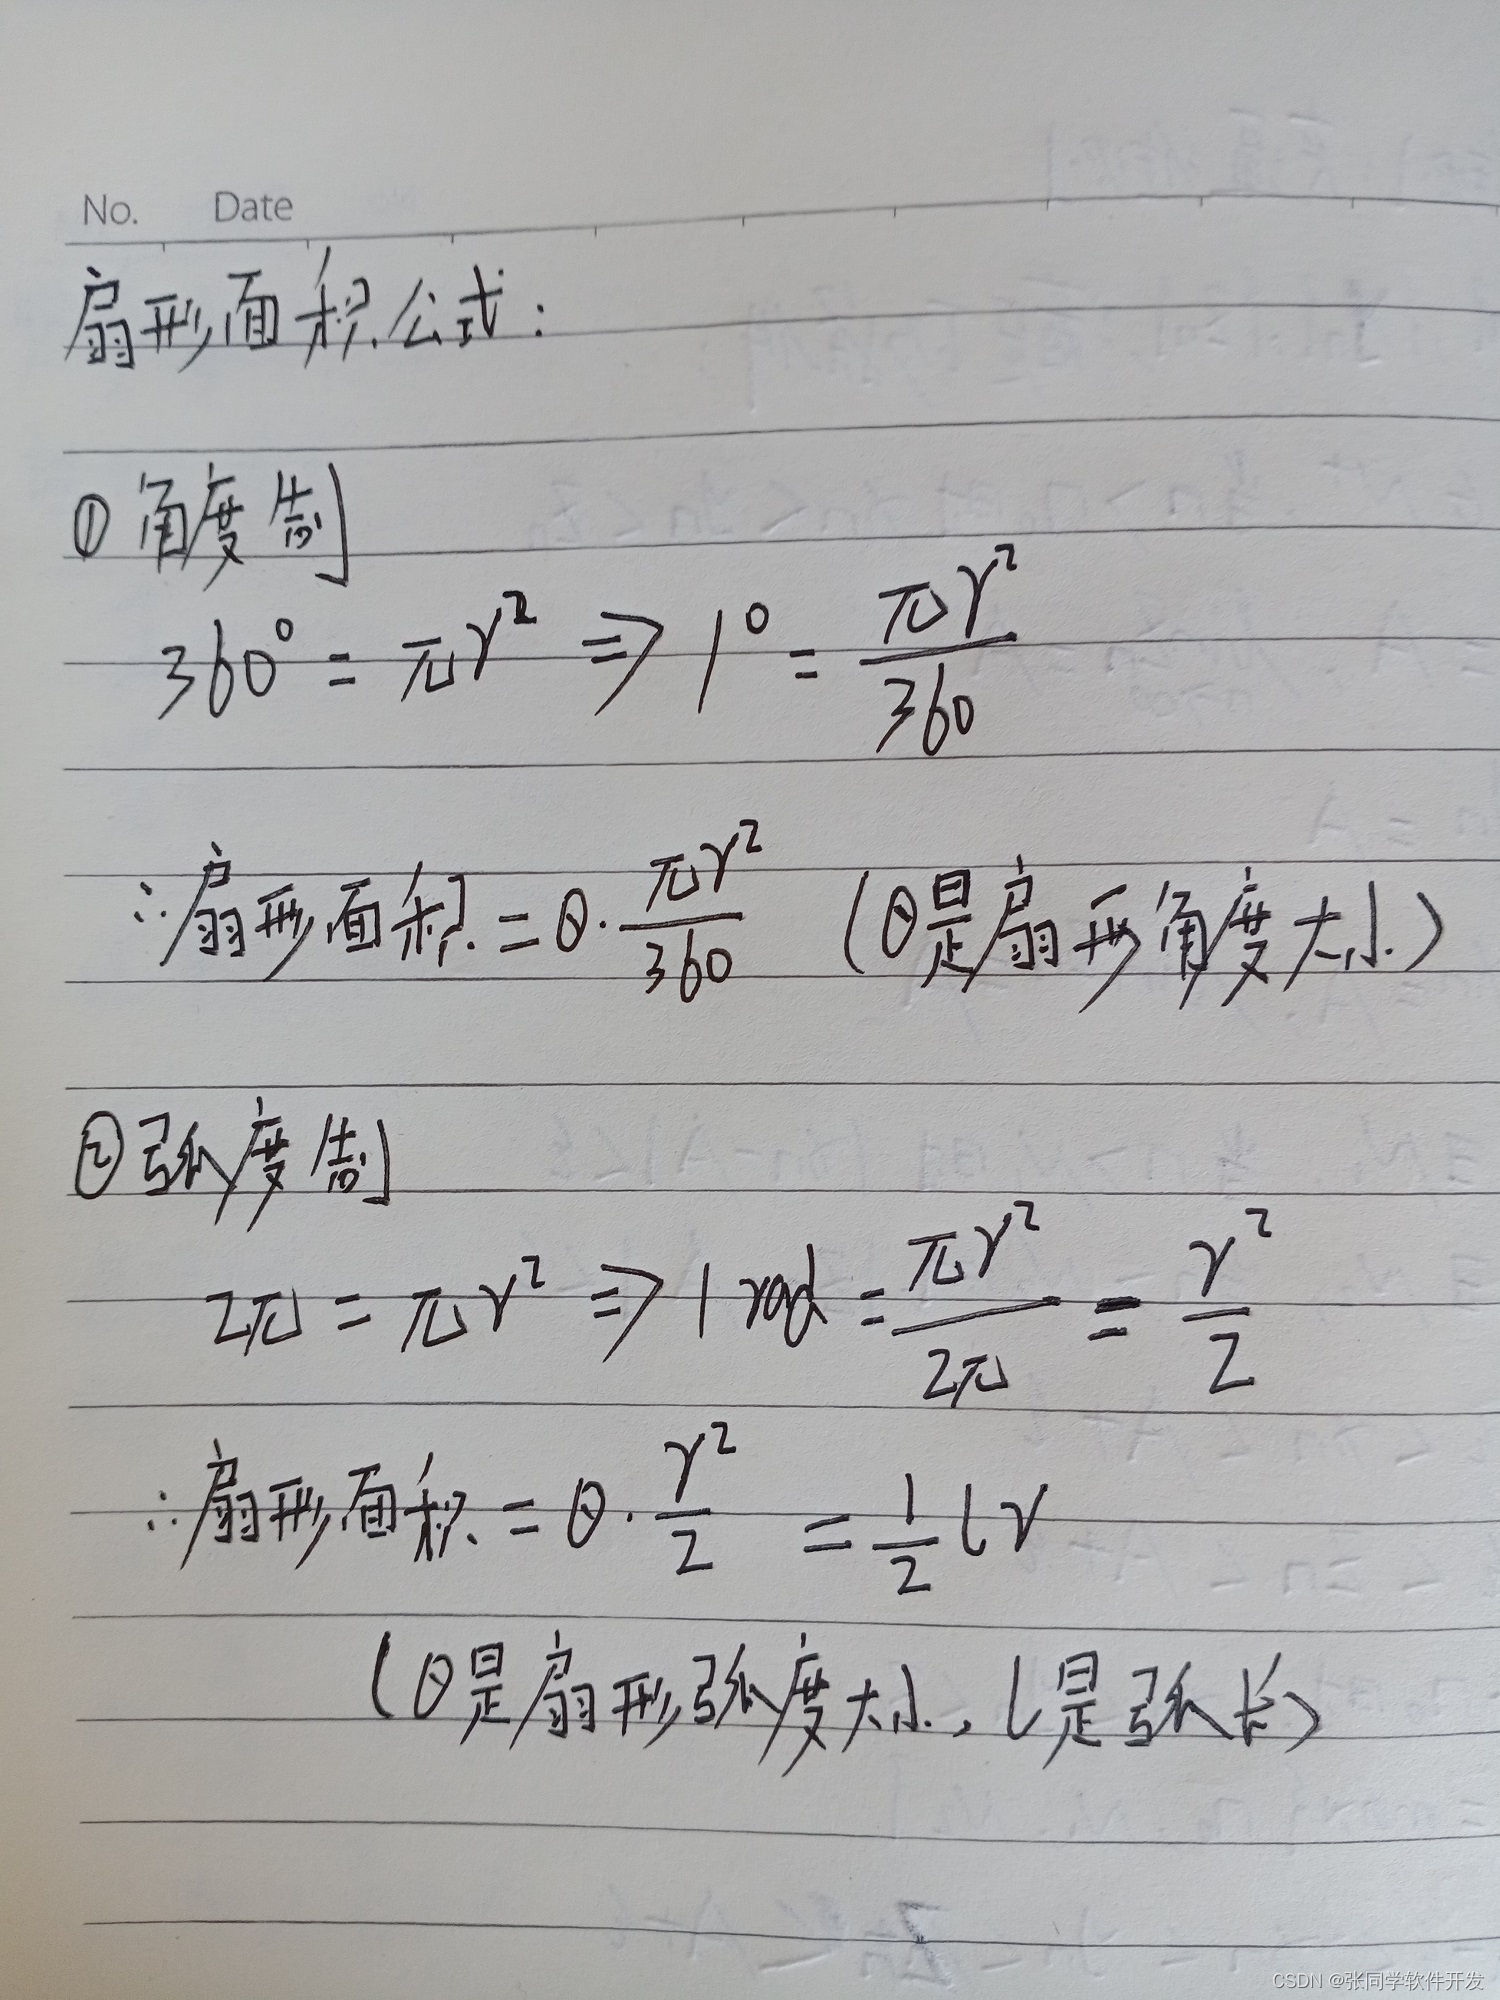 No. Date
扇形面积公式:
① 角度制
360° = πr² ⇒ 1° = πr²/360
∴扇形面积 = θ·πr²/360 (θ是扇形角度大小)
② 弧度制
2π = πr² ⇒ 1 rad = πr²/2π = r²/2
∴扇形面积 = θ·r²/2 = 1/2 lr
(θ是扇形弧度大小, l是弧长)
CSDN @张同学软件开发